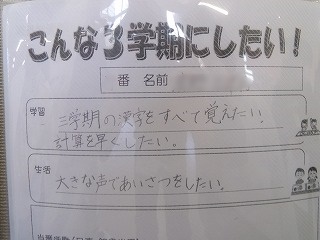 こんな3学期にしたい!
番 名前
学習
三学期の漢字をすべて覚えたい。
計算を早くしたい。
生活
大きな声であいさつをしたい。